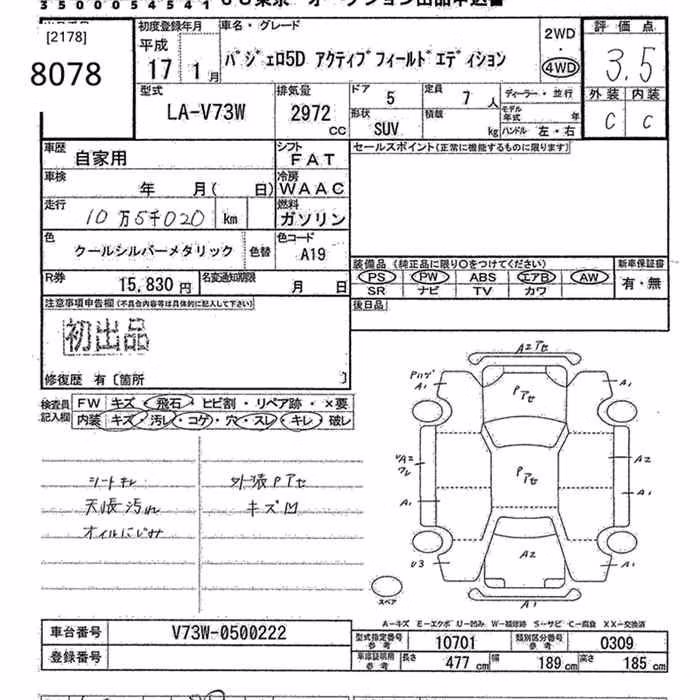 35000054541 オークション出品申込書
[2178]
8078
初度登録年月
平成
17 1月
車名・グレード
パジェロ5D アクティブフィールドエディション
2WD
・
4WD
評価点
3.5
外装 内装
C C
型式
LA-V73W
排気量
2972
CC
ドア 5 定員 7人
形状 SUV 積載 kg
ディーラー・並行
モデル年式 年
ハンドル 左・右
車歴 自家用
シフト FAT
セールスポイント(正常に機能するものに限ります)
車検 年 月( 日)
冷房 WAAC
走行 10万5千020 km
燃料 ガソリン
色 クールシルバーメタリック 色替
色コード A19
R券 15,830円
名変通知期限 月 日
装備品(純正品に限り○をつけてください)
PS PW ABS エアB AW
SR ナビ TV カワ
新車保証書
有・無
後日品
注意事項申告欄(不具合内容等は具体的に記入して下さい)
初出品
修復歴 有〔箇所 〕
検査員記入欄
FW キズ・飛石・ヒビ割・リペア跡・×要
内装 キズ・汚レ・コゲ・穴・スレ・キレ・破レ
シートキレ
天張汚れ
オイルにじみ
外装Pアセ
キズ凹
A2アセ
Pハゲ
A1
A1
Pアセ
Pアセ
A2
A1
A2
A1
A2
U3
A1
A1
スペア
A-キズ E-エクボ U-凹み W-補修跡 S-サビ C-腐食 XX-交換済
車台番号 V73W-0500222
登録番号
型式指定番号参考 10701 類別区分番号参考 0309
車庫証明用参考 長さ 477cm 幅 189cm 高さ 185cm